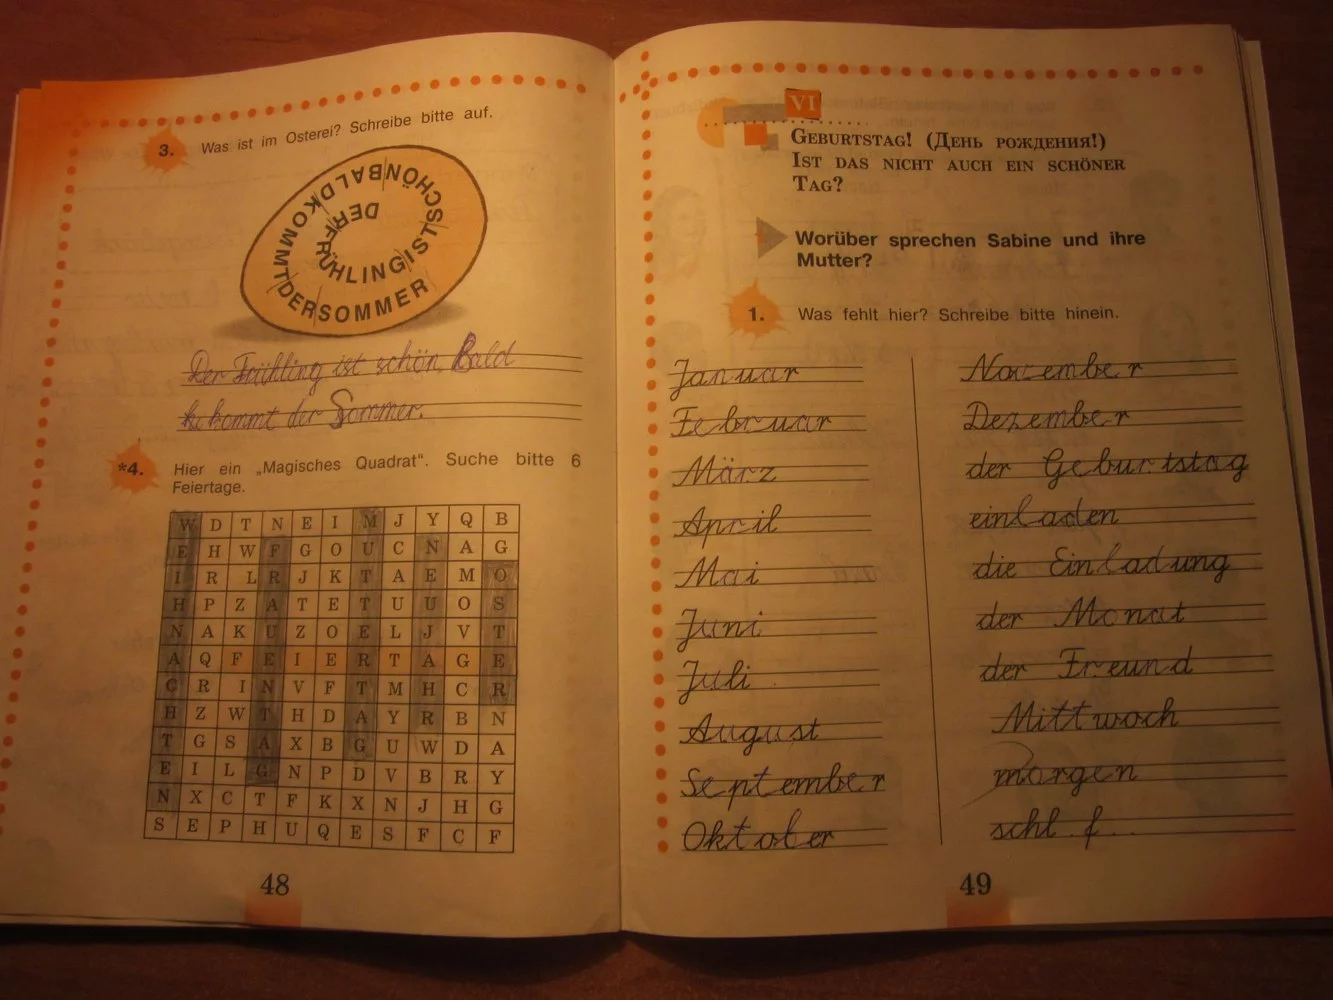 3. Was ist im Osterei? Schreibe bitte auf.
DERFRÜHLINGISTSCHÖNBALDKOMMTDERSOMMER
Der Frühling ist schön, Bald
kommt der Sommer.
*4. Hier ein „Magisches Quadrat“. Suche bitte 6
Feiertage.
W D T N E I M J Y Q B
E H W F G O U C N A G
I R L R J K T A E M O
H P Z A T E T U U O S
N A K U Z O E L J V T
A Q F E I E R T A G E
C R I N V F T M H C R
H Z W T H D A Y R B N
T G S A X B G U W D A
E I L G N P D V B R Y
N X C T F K X N J H G
S E P H U Q E S F C F
48
VI
GEBURTSTAG! (ДЕНЬ РОЖДЕНИЯ!)
IST DAS NICHT AUCH EIN SCHÖNER
TAG?
Worüber sprechen Sabine und ihre
Mutter?
1. Was fehlt hier? Schreibe bitte hinein.
Januar
Februar
März
April
Mai
Juni
Juli
August
September
Oktober
November
Dezember
der Geburtstag
einladen
die Einladung
der Monat
der Freund
Mittwoch
morgen
schl f
49